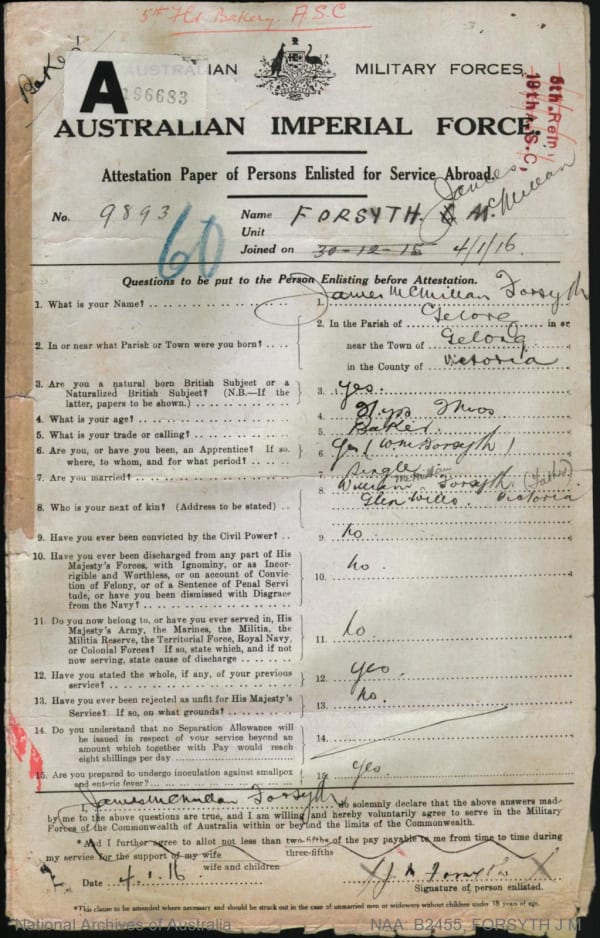 5th Fld Bakery. A.S.C
Baker
A
AUSTRALIAN MILITARY FORCES.
196683
5th. Rein
19th A.S.C.
AUSTRALIAN IMPERIAL FORCE.
Attestation Paper of Persons Enlisted for Service Abroad.
James McMillan
No. 9893
Name FORSYTH. J. M.
60
Unit
Joined on 30-12-15 4/1/16.
Questions to be put to the Person Enlisting before Attestation.
1. What is your Name?
1. James McMillan Forsyth
2. In or near what Parish or Town were you born?
2. In the Parish of Gelong in or
near the Town of Gelong
in the County of Victoria
3. Are you a natural born British Subject or a
Naturalized British Subject? (N.B.—If the
latter, papers to be shown.)
3. Yes.
4. What is your age?
4. yrs mos
5. What is your trade or calling?
5. Baker.
6. Are you, or have you been, an Apprentice? If so.
where, to whom, and for what period?
6. Yes (Wm Forsyth)
7. Are you married?
7. Single
8. Who is your next of kin? (Address to be stated)
8. William McMillan Forsyth. (Father)
Glen Wills. Victoria
9. Have you ever been convicted by the Civil Power?
9. No.
10. Have you ever been discharged from any part of His
Majesty's Forces, with Ignominy, or as Incor-
rigible and Worthless, or on account of Convic-
tion of Felony, or of a Sentence of Penal Servi
tude, or have you been Dismissed with Disgrace
from the Navy?
10. No.
11. Do you now belong to, or have you ever served in, His
Majesty's Army, the Marines, the Militia, the
Militia Reserve, the Territorial Force, Royal Navy,
or Colonial Forces? If so, state which, and if not
now serving, state cause of discharge
11. No.
12. Have you stated the whole, if any, of your previous
service?
12. Yes
13. Have you ever been rejected as unfit for His Majesty's
Service? If so, on what grounds?
13. No.
14. Do you understand that no Separation Allowance will
be issued in respect of your service beyond an
amount which together with Pay would reach
eight shillings per day
14.
15. Are you prepared to undergo inoculation against smallpox
and enteric fever?
15. Yes.
I, James McMillan Forsyth do solemnly declare that the above answers made
by me to the above questions are true, and I am willing and hereby voluntarily agree to serve in the Military
Forces of the Commonwealth of Australia within or beyond the limits of the Commonwealth.
*And I further agree to allot not less than two-fifths of the pay payable to me from time to time during
three-fifths
my service for the support of my wife
wife and children
Date 4.1.16
X J M Forsyth X
Signature of person enlisted.
*This clause to be amended where necessary and should be struck out in the case of unmarried men or widowers without children under 18 years of age.
National Archives of Australia
NAA: B2455, FORSYTH J M